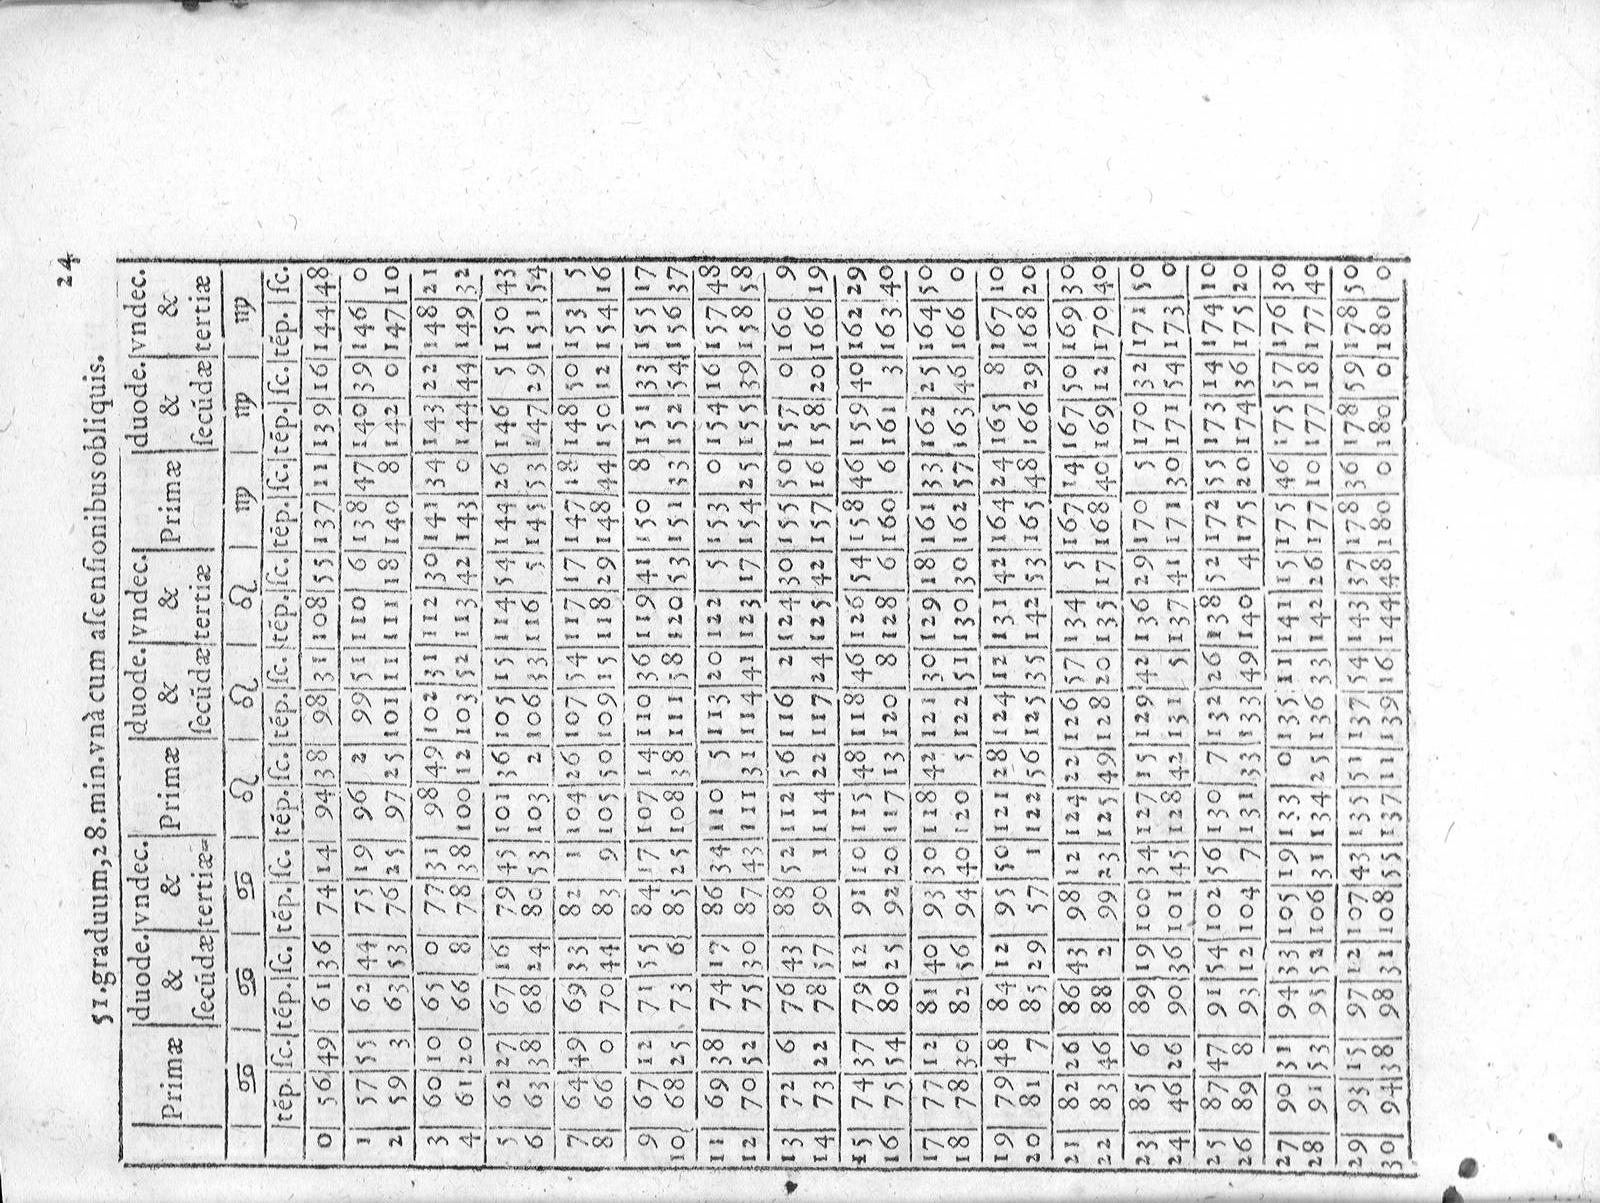 24
51.graduum,28.min.vnà cum aſcenſionibus obliquis.
Primæ | duode. & ſecūdæ | vndec. & tertiæ | Primæ | duode. & ſecūdæ | vndec. & tertiæ | Primæ | duode. & ſecūdæ | vndec. & tertiæ
♋ | ♋ | ♋ | ♌ | ♌ | ♌ | ♍ | ♍ | ♍
tép. | ſc. | tép. | ſc. | tép. | ſc. | tép. | ſc. | tép. | ſc. | tép. | ſc. | tép. | ſc. | tép. | ſc. | tép. | ſc.
0 | 56 49 | 61 36 | 74 14 | 94 38 | 98 31 | 108 55 | 137 11 | 139 16 | 144 48
1 | 57 55 | 62 44 | 75 19 | 96 2 | 99 51 | 110 6 | 138 47 | 140 39 | 146 0
2 | 59 3 | 63 53 | 76 25 | 97 25 | 101 11 | 111 18 | 140 8 | 142 0 | 147 10
3 | 60 10 | 65 0 | 77 31 | 98 49 | 102 31 | 112 30 | 141 34 | 143 22 | 148 21
4 | 61 20 | 66 8 | 78 38 | 100 12 | 103 52 | 113 42 | 143 0 | 144 44 | 149 32
5 | 62 27 | 67 16 | 79 45 | 101 36 | 105 15 | 114 54 | 144 26 | 146 5 | 150 43
6 | 63 38 | 68 24 | 80 53 | 103 2 | 106 33 | 116 5 | 145 53 | 147 29 | 151 54
7 | 64 49 | 69 33 | 82 1 | 104 26 | 107 54 | 117 17 | 147 18 | 148 50 | 153 5
8 | 66 0 | 70 44 | 83 9 | 105 50 | 109 15 | 118 29 | 148 44 | 150 12 | 154 16
9 | 67 12 | 71 55 | 84 17 | 107 14 | 110 36 | 119 41 | 150 8 | 151 33 | 155 17
10 | 68 25 | 73 6 | 85 25 | 108 38 | 111 58 | 120 53 | 151 33 | 152 54 | 156 37
11 | 69 38 | 74 17 | 86 34 | 110 5 | 113 20 | 122 5 | 153 0 | 154 16 | 157 48
12 | 70 52 | 75 30 | 87 43 | 111 31 | 114 41 | 123 17 | 154 25 | 155 39 | 158 58
13 | 72 6 | 76 43 | 88 52 | 112 56 | 116 2 | 124 30 | 155 50 | 157 0 | 160 9
14 | 73 22 | 78 57 | 90 1 | 114 22 | 117 24 | 125 42 | 157 16 | 158 20 | 166 19
15 | 74 37 | 79 12 | 91 10 | 115 48 | 118 46 | 126 54 | 158 46 | 159 40 | 162 29
16 | 75 54 | 80 25 | 92 20 | 117 13 | 120 8 | 128 6 | 160 6 | 161 3 | 163 40
17 | 77 12 | 81 40 | 93 30 | 118 42 | 121 30 | 129 18 | 161 33 | 162 25 | 164 50
18 | 78 30 | 82 56 | 94 40 | 120 5 | 122 51 | 130 30 | 162 57 | 163 46 | 166 0
19 | 79 48 | 84 12 | 95 50 | 121 28 | 124 12 | 131 42 | 164 24 | 165 8 | 167 10
20 | 81 7 | 85 29 | 57 1 | 122 56 | 125 35 | 142 53 | 165 48 | 166 29 | 168 20
21 | 82 26 | 86 43 | 98 12 | 124 22 | 126 57 | 134 5 | 167 14 | 167 50 | 169 30
22 | 83 46 | 88 2 | 99 23 | 125 49 | 128 20 | 135 17 | 168 40 | 169 12 | 170 40
23 | 85 6 | 89 19 | 100 34 | 127 15 | 129 42 | 136 29 | 170 5 | 170 32 | 171 50
24 | 46 26 | 90 36 | 101 45 | 128 42 | 131 5 | 137 41 | 171 30 | 171 54 | 173 0
25 | 87 47 | 91 54 | 102 56 | 130 7 | 132 26 | 138 52 | 172 55 | 173 14 | 174 10
26 | 89 8 | 93 12 | 104 7 | 131 33 | 133 49 | 140 4 | 175 20 | 174 36 | 175 20
27 | 90 31 | 94 33 | 105 19 | 133 0 | 135 11 | 141 15 | 175 46 | 175 57 | 176 30
28 | 91 53 | 95 52 | 106 31 | 134 25 | 136 33 | 142 26 | 177 10 | 177 18 | 177 40
29 | 93 15 | 97 12 | 107 43 | 135 51 | 137 54 | 143 37 | 178 36 | 178 59 | 178 50
30 | 94 38 | 98 31 | 108 55 | 137 11 | 139 16 | 144 48 | 180 0 | 180 0 | 180 0